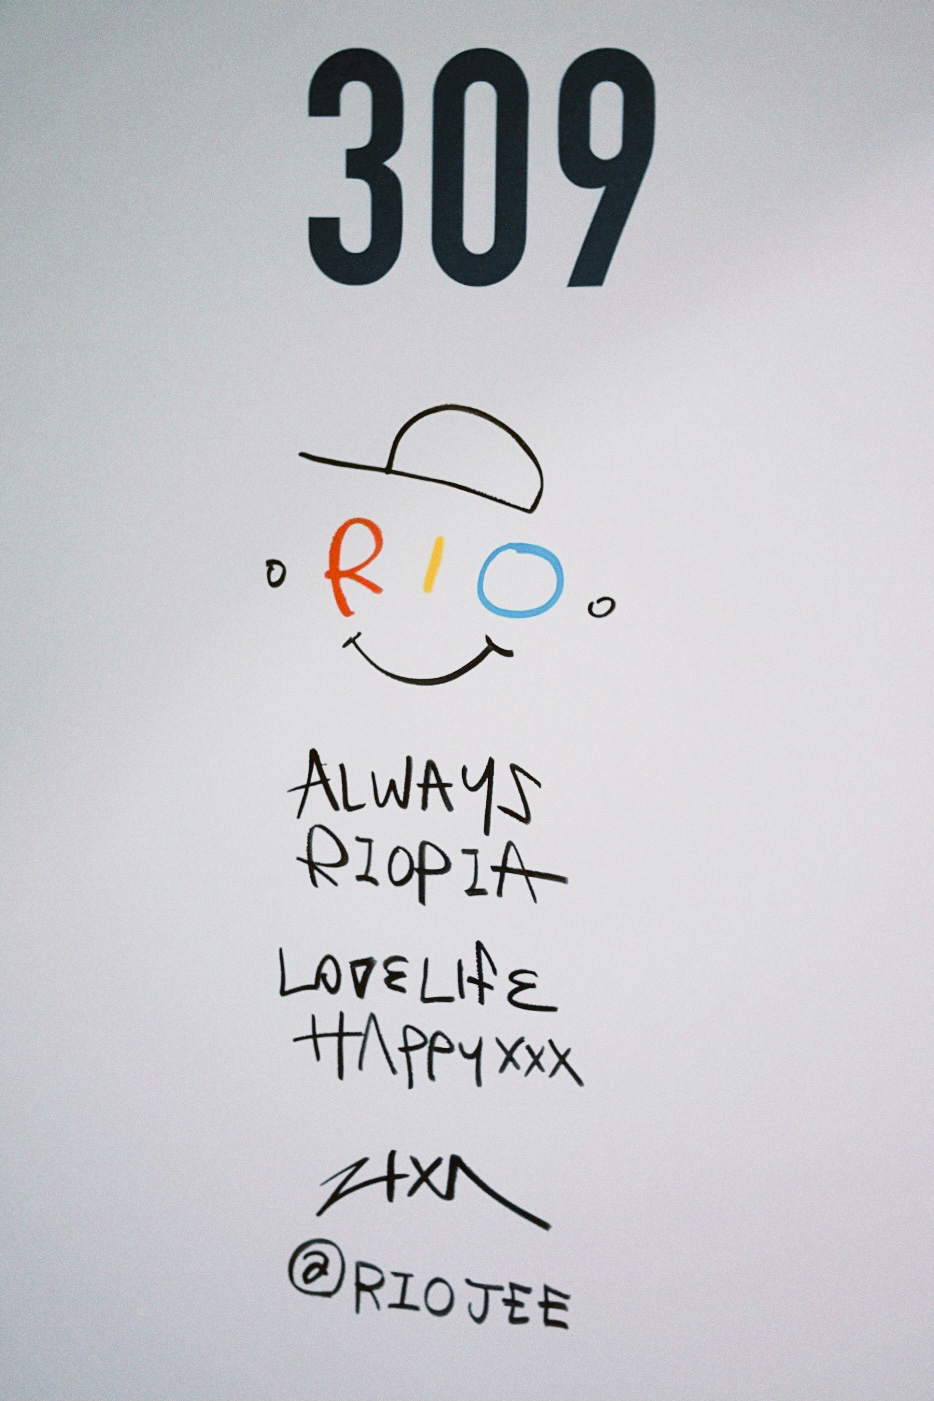 309
RIO
ALWAYS
RIOPIA
LOVELIFE
HAPPYXXX
@RIOJEE